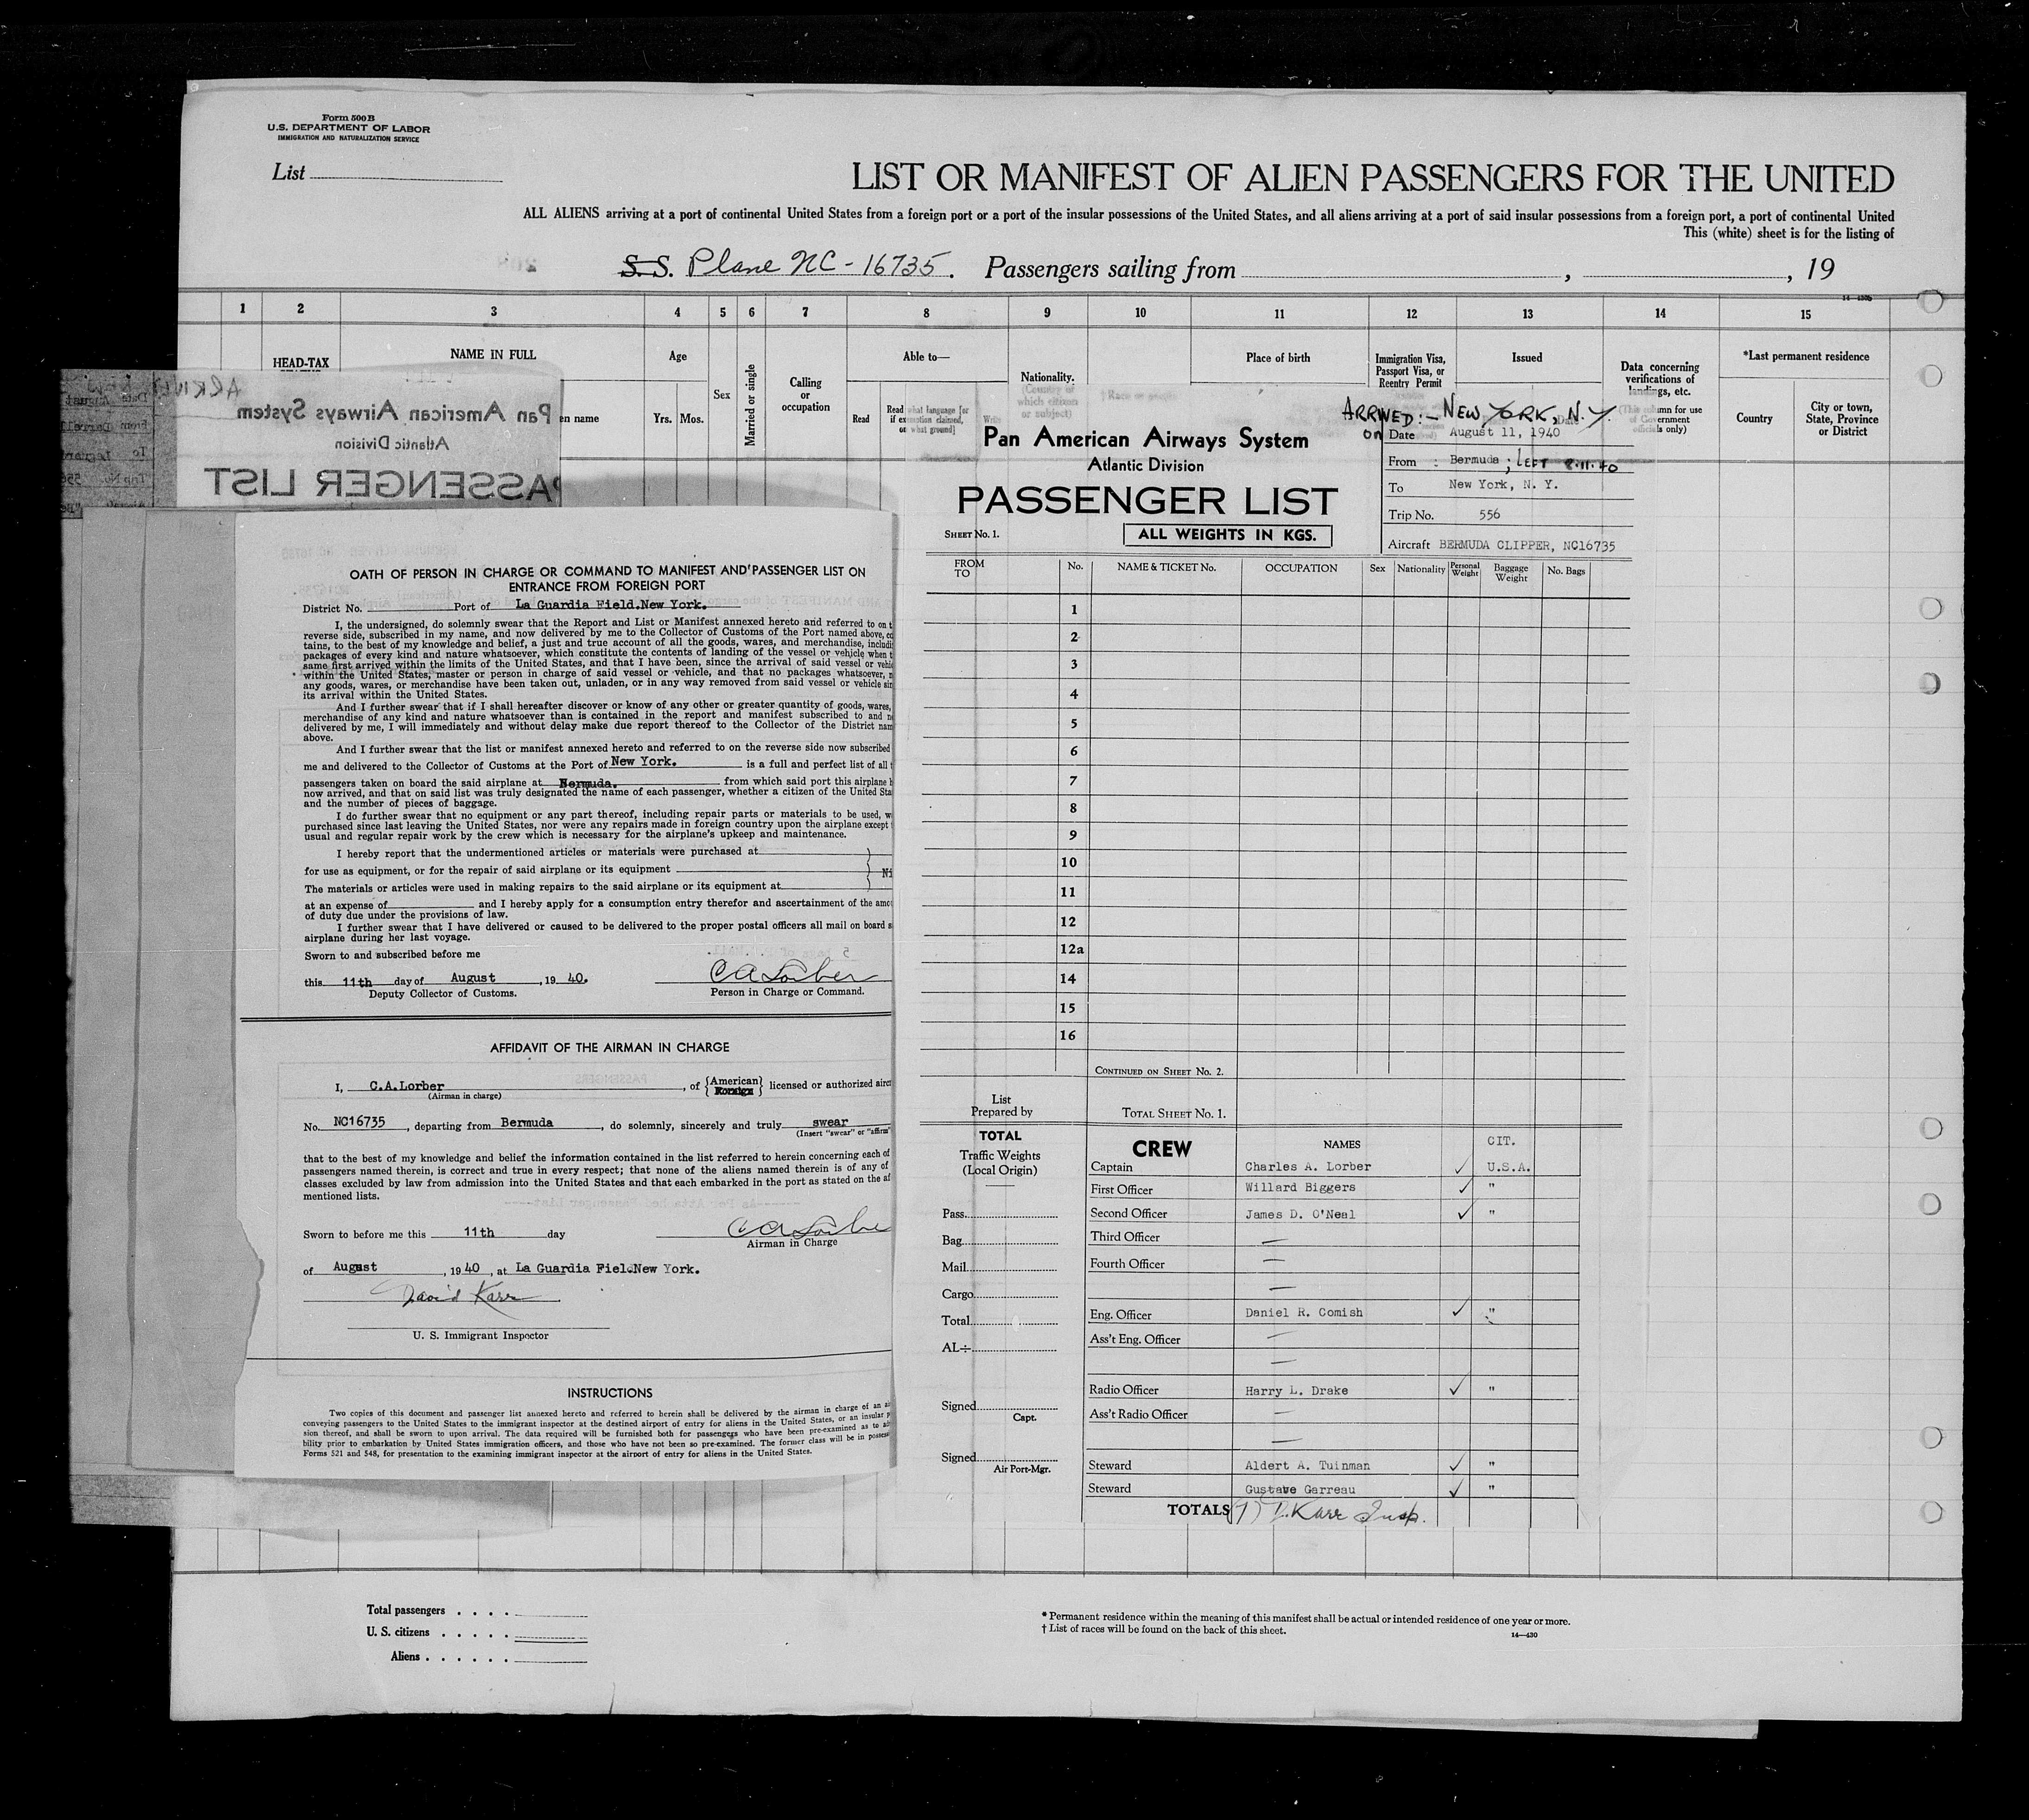 Form 500 B
U.S. DEPARTMENT OF LABOR
IMMIGRATION AND NATURALIZATION SERVICE
List
LIST OR MANIFEST OF ALIEN PASSENGERS FOR THE UNITED
ALL ALIENS arriving at a port of continental United States from a foreign port or a port of the insular possessions of the United States, and all aliens arriving at a port of said insular possessions from a foreign port, a port of continental United
This (white) sheet is for the listing of
S. S. Plane NC-16735. Passengers sailing from , , 19
1 2 3 4 5 6 7 8 9 10 11 12 13 14 15
HEAD-TAX
NAME IN FULL
en name
Age
Yrs. Mos.
Sex
Married or single
Calling
or
occupation
Able to—
Read
Read what language [or
if exemption claimed,
on what ground]
Write
Nationality.
(Country of
which citizen
or subject)
† Race or people
Place of birth
Immigration Visa,
Passport Visa, or
Reentry Permit
Issued
Data concerning
verifications of
landings, etc.
(This column for use
of Government
officials only)
*Last permanent residence
Country
City or town,
State, Province
or District
Pan American Airways System
Atlantic Division
PASSENGER LIST
OATH OF PERSON IN CHARGE OR COMMAND TO MANIFEST AND PASSENGER LIST ON
ENTRANCE FROM FOREIGN PORT
District No. Port of La Guardia Field.New York.
I, the undersigned, do solemnly swear that the Report and List or Manifest annexed hereto and referred to on t
reverse side, subscribed in my name, and now delivered by me to the Collector of Customs of the Port named above, co
tains, to the best of my knowledge and belief, a just and true account of all the goods, wares, and merchandise, includi
packages of every kind and nature whatsoever, which constitute the contents of landing of the vessel or vehicle when t
same first arrived within the limits of the United States, and that I have been, since the arrival of said vessel or vehi
within the United States, master or person in charge of said vessel or vehicle, and that no packages whatsoever, n
any goods, wares, or merchandise have been taken out, unladen, or in any way removed from said vessel or vehicle sin
its arrival within the United States.
And I further swear that if I shall hereafter discover or know of any other or greater quantity of goods, wares,
merchandise of any kind and nature whatsoever than is contained in the report and manifest subscribed to and n
delivered by me, I will immediately and without delay make due report thereof to the Collector of the District nam
above.
And I further swear that the list or manifest annexed hereto and referred to on the reverse side now subscribed
me and delivered to the Collector of Customs at the Port of New York. is a full and perfect list of all t
passengers taken on board the said airplane at Bermuda. from which said port this airplane h
now arrived, and that on said list was truly designated the name of each passenger, whether a citizen of the United Sta
and the number of pieces of baggage.
I do further swear that no equipment or any part thereof, including repair parts or materials to be used, w
purchased since last leaving the United States, nor were any repairs made in foreign country upon the airplane except
usual and regular repair work by the crew which is necessary for the airplane's upkeep and maintenance.
I hereby report that the undermentioned articles or materials were purchased at
for use as equipment, or for the repair of said airplane or its equipment Ni
The materials or articles were used in making repairs to the said airplane or its equipment at
at an expense of and I hereby apply for a consumption entry therefor and ascertainment of the amo
of duty due under the provisions of law.
I further swear that I have delivered or caused to be delivered to the proper postal officers all mail on board s
airplane during her last voyage.
Sworn to and subscribed before me
this 11th day of August , 19 40. C A Lorber
Deputy Collector of Customs. Person in Charge or Command.
AFFIDAVIT OF THE AIRMAN IN CHARGE
I, C.A.Lorber , of {American} {Foreign} licensed or authorized airc
(Airman in charge)
No. NC16735 , departing from Bermuda , do solemnly, sincerely and truly swear
(Insert "swear" or "affirm"
that to the best of my knowledge and belief the information contained in the list referred to herein concerning each of
passengers named therein, is correct and true in every respect; that none of the aliens named therein is of any of
classes excluded by law from admission into the United States and that each embarked in the port as stated on the af
mentioned lists.
Sworn to before me this 11th day C A Lorbe
Airman in Charge
of August , 19 40 , at La Guardia Fiel.New York.
David Karr
U. S. Immigrant Inspector
INSTRUCTIONS
Two copies of this document and passenger list annexed hereto and referred to herein shall be delivered by the airman in charge of an ai
conveying passengers to the United States to the immigrant inspector at the destined airport of entry for aliens in the United States, or an insular p
sion thereof, and shall be sworn to upon arrival. The data required will be furnished both for passengers who have been pre-examined as to ad
bility prior to embarkation by United States immigration officers, and those who have not been so pre-examined. The former class will be in possess
Forms 521 and 548, for presentation to the examining immigrant inspector at the airport of entry for aliens in the United States.
Pan American Airways System
Atlantic Division
PASSENGER LIST
SHEET No. 1.
ALL WEIGHTS IN KGS.
ARRIVED:- NEW YORK, N.Y.
on Date August 11, 1940
From : Bermuda ; LEFT 8-11-40
To New York, N. Y.
Trip No. 556
Aircraft BERMUDA CLIPPER, NC16735
FROM
TO
No. NAME & TICKET No. OCCUPATION Sex Nationality Personal Weight Baggage Weight No. Bags
1
2
3
4
5
6
7
8
9
10
11
12
12a
14
15
16
CONTINUED ON SHEET No. 2.
List
Prepared by
TOTAL SHEET No. 1.
TOTAL
Traffic Weights
(Local Origin)
Pass.
Bag.
Mail
Cargo
Total
AL÷
Signed
Capt.
Signed
Air Port-Mgr.
CREW NAMES CIT.
Captain Charles A. Lorber ✓ U.S.A.
First Officer Willard Biggers ✓ "
Second Officer James D. O'Neal ✓ "
Third Officer —
Fourth Officer —
—
Eng. Officer Daniel R. Comish ✓ "
Ass't Eng. Officer —
—
Radio Officer Harry L. Drake ✓ "
Ass't Radio Officer —
—
Steward Aldert A. Tuinman ✓ "
Steward Gustave Garreau ✓ "
TOTALS (7) D. Karr Insp.
Total passengers
U. S. citizens
Aliens
* Permanent residence within the meaning of this manifest shall be actual or intended residence of one year or more.
† List of races will be found on the back of this sheet.
14—430